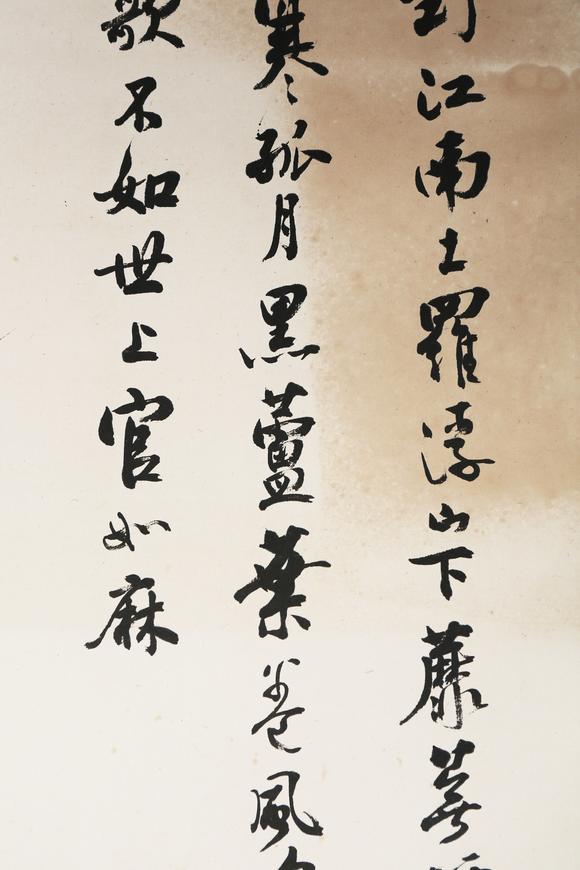 江南土羅浮山下蘼蕪
寒孤月黑蘆葉卷風
歌不如世上官如麻